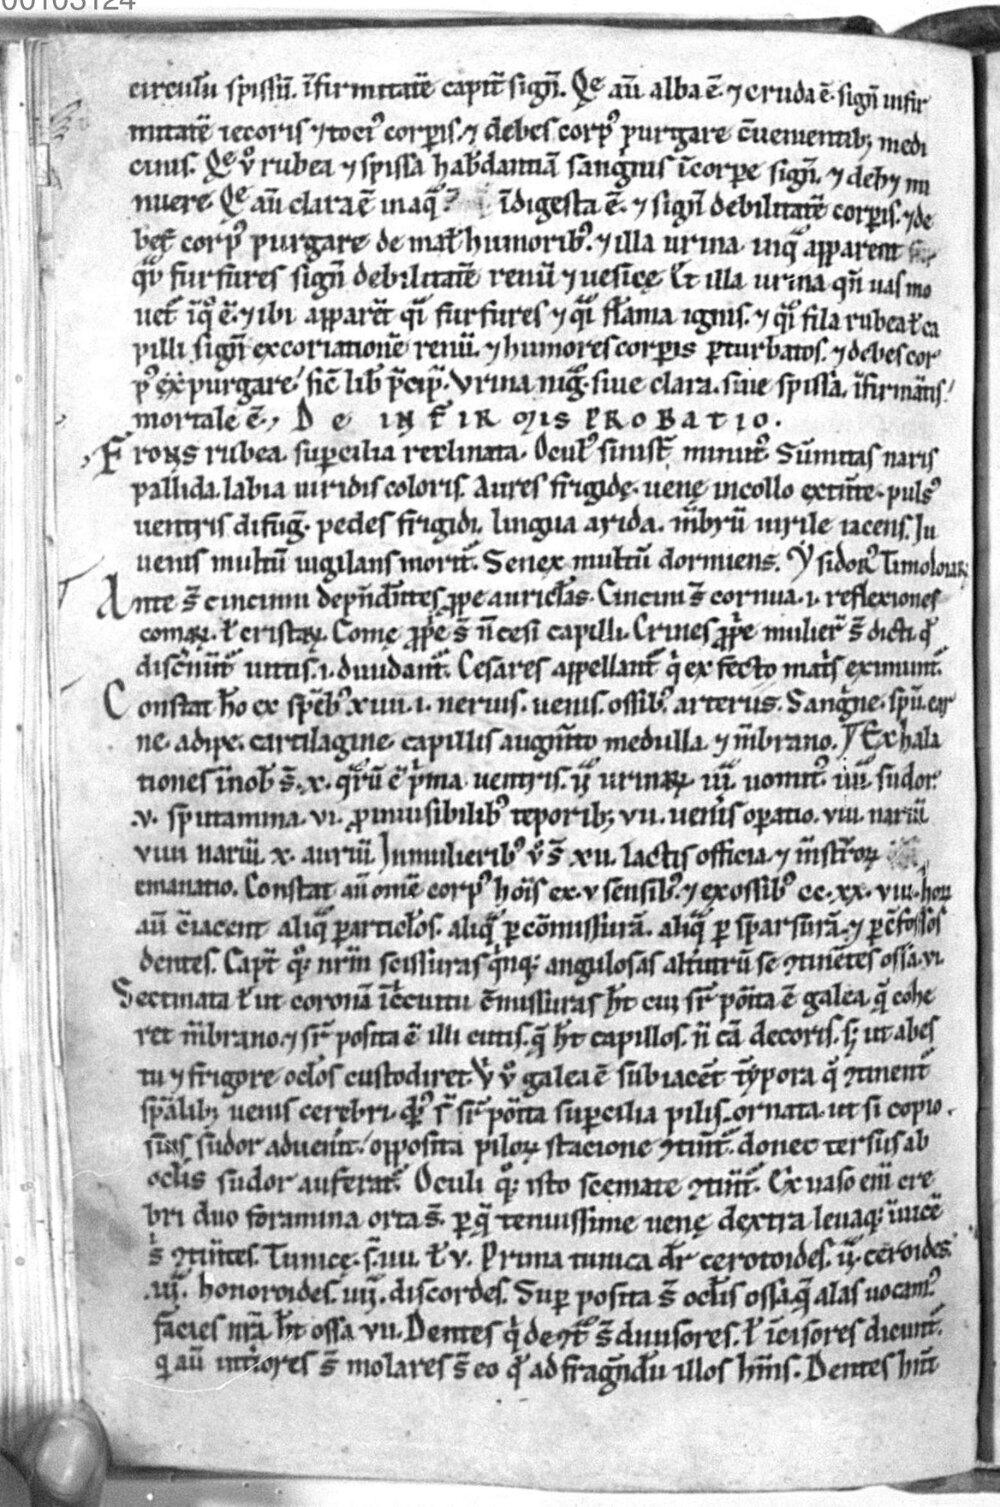 00103124
circulu spissū. īfirmitatē capiť signť. Qe aū alba ē ⁊ cruda ē signť infir
mitatē iecoris ⁊ tociꝰ corꝑis. ⁊ debes corpꝰ purgare cuenientibꝫ medi
cinis. Qe v̊ rubea ⁊ spissa habdantiā sanguis ī corꝑe signť. ⁊ debꝫ mi
nuere Qe aū clara ē in aqᷓ īdigesta ē. ⁊ signť debilitatē corꝑis. ⁊ de
bes corpꝰ purgare de mat humoribꝰ. ⁊ illa urina in qᷓ apparent
qͣi furfures signť debilitatē renū ⁊ uesicę. Et illa urina qn̄ uas mo
uet ī qͦ ē. ⁊ ibi apparēt qͣi furfures ⁊ qͣi flāma ignis. ⁊ qͣi fila rubea ł ca
pilli signť excoriationē renū. ⁊ humores corꝑis ꝑturbatos. ⁊ debes cor
pꝰ purgare sic lib p̄cip. Vrina nigͣ. siue clara. siue spissa. īfirmātis
mortale ē. De INFIRMIS PROBATIO.
Frons rubea. suꝑcilia reclinata. Oculꝰ sinist minut. Sūmitas naris
pallida. labia uiridis coloris. Aures frigidę. uenę in collo extincte. pulsꝰ
uentris difug. pedes frigidi. lingua arida. mēbrū uirile iacens. Iu
uenis multū uigilans morit. Senex multū dormiens. Ysidor
Ante s̄ cincinni depndentes ꝓpe auriclas. Cincini s̄ cornua .i. reflexiones
comaꝝ. ł cristaꝝ. Comę ꝓprie s̄ n̄ cesi capilli. Crines ꝓprie mulierū s̄ dicti qd
discnunt uittis .i. diuidant. Cesares appellant qͥ ex secto matris eximunt.
Constat hō ex spēbꝰ xiiii .i. neruis. uenis. ossibꝰ. arteriis. Sanguine. spū. car
ne. adipe. cartilagine. capillis augmto medulla. ⁊ mēbrano. Exhala
tiones in nob s̄ .x. qͣrū ē pͥma uentris. ij urinaꝝ iij uomitꝰ. iiij sudor.
.v. sputamina. vi. ꝓ inuisibilibꝰ teporibꝫ. vii. ueneris oꝑatio. viii. nariū
viiii nariū. x. auriū. In mulieribꝰ v̊ s̄ xii. lactis officia. ⁊ mēstruoꝝ
emanatio. Constat aū omē corpꝰ hōis ex .v sensibꝰ. ⁊ ex ossibꝰ cc.xx.viii. hoꝝ
aū ciacent aliqᷓ ꝑ articlos. aliqᷓ ꝑ cōmissurā. aliqᷓ ꝑ sparsurā. ⁊ ꝑ cfossos
dentes. Capť qͦꝫ nrm scissuras qͥnqꝫ angulosas alťutrū se ꝯtinētes ossa .vi.
Sectinata ł ut coronā ī circuitu cmissuras ht cui sr̄ poīta ē galea. qͥ cohe
ret mēbrano. ⁊ sr̄ posita ē illi cutis. qͥ ht capillos. n̄ cā decoris. sꝫ ut abes
tu ⁊ frigore oclos custodiret. Vͥ v̊ galea ē subiacēt tympora qͥ ꝯtinent
spālibꝫ uenis cerebri. sr̄ poīta suꝑcilia pilis ornata. ut si copio
sus sudor aduenit opposita piloꝝ stacione ꝯtinet. donec tersus ab
oclis sudor auferat. Oculi qͦꝫ isto scemate ꝯtinet. Ex uaso enī cere
bri duo foramina orta s̄. ꝑ qᷓ tenuissime uenę dextra leuaqꝫ
s̄ ꝯtinētes. Tunicę. s̄ .iiii. ł v. Prima tunica dr cerotoides. ij. ceroides.
.iij. honoroides. iiij. discordes. Suꝑ posita s̄ oclis ossa. qᷓ alas uocamꝰ.
facies nrā ht ossa vii. Dentes qͥ s̄ diuisores. ł īcisores dicunt.
qͥ aū intiores s̄ molares s̄ eo qd ad fragndū illos hēmꝰ. Dentes hnt